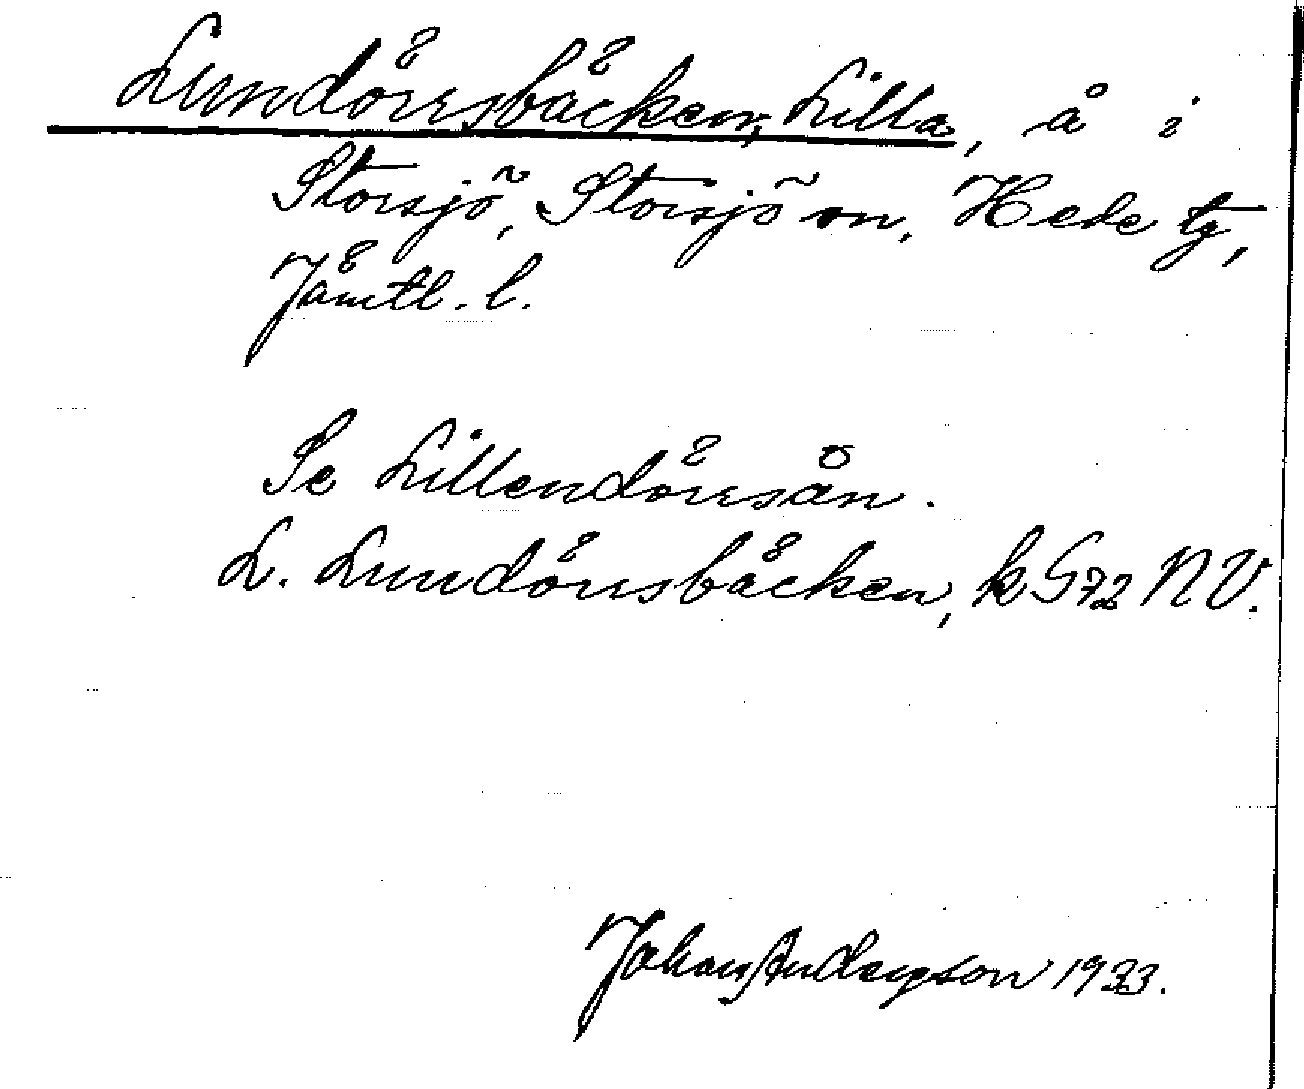 Lundörrsbäcken, Lilla, å i
Storsjö, Storsjö sn, Hede tg,
Jämtl. l.
Se Lillendörrsån.
L. Lundörrsbäcken, k G72 NV.
Johan Anderson 1933.